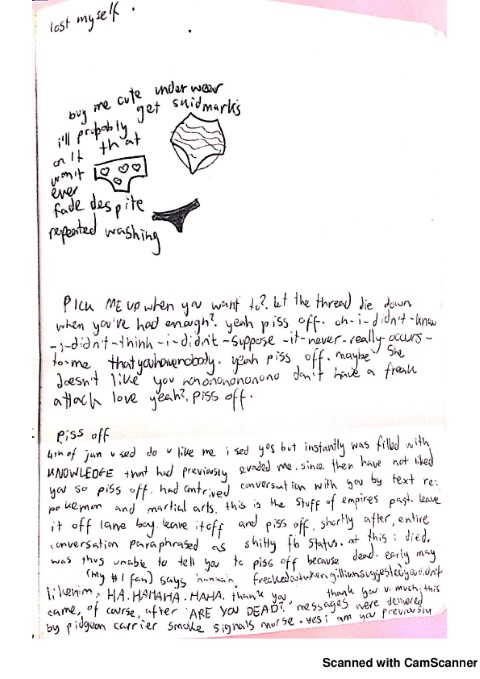 lost myself.
buy me cute underwear
i'll probably get skidmarks
on it that
won't
ever
fade despite
repeated washing
PICK ME UP when you want to? let the thread die down
when you've had enough? yeah piss off. oh-i-didn't-know
-i-didn't-think-i-didn't-suppose-it-never-really-occurs-
to-me thatyouhavenobody. yeah piss off. maybe she
doesn't like you nononononono don't have a freak
attack love yeah? piss off.
piss off
4th of jan u sed do u like me i sed yes but instantly was filled with
KNOWLEDGE that had previously evaded me. since then have not liked
you so piss off. had contrived conversation with you by text re:
pokemon and martial arts. this is the stuff of empires past. leave
it off lame boy. leave it off and piss off. shortly after, entire
conversation paraphrased as shitty fb status. at this i died.
was thus unable to tell you to piss off because dead. early may
(my #1 fan) says
likehim; HA. HAHAHA. HAHA. thank you, thank you v. much; this
came, of course, after 'ARE YOU DEAD?' messages were delivered
by pidgeon carrier smoke signals morse. yes i am you previously
Scanned with CamScanner